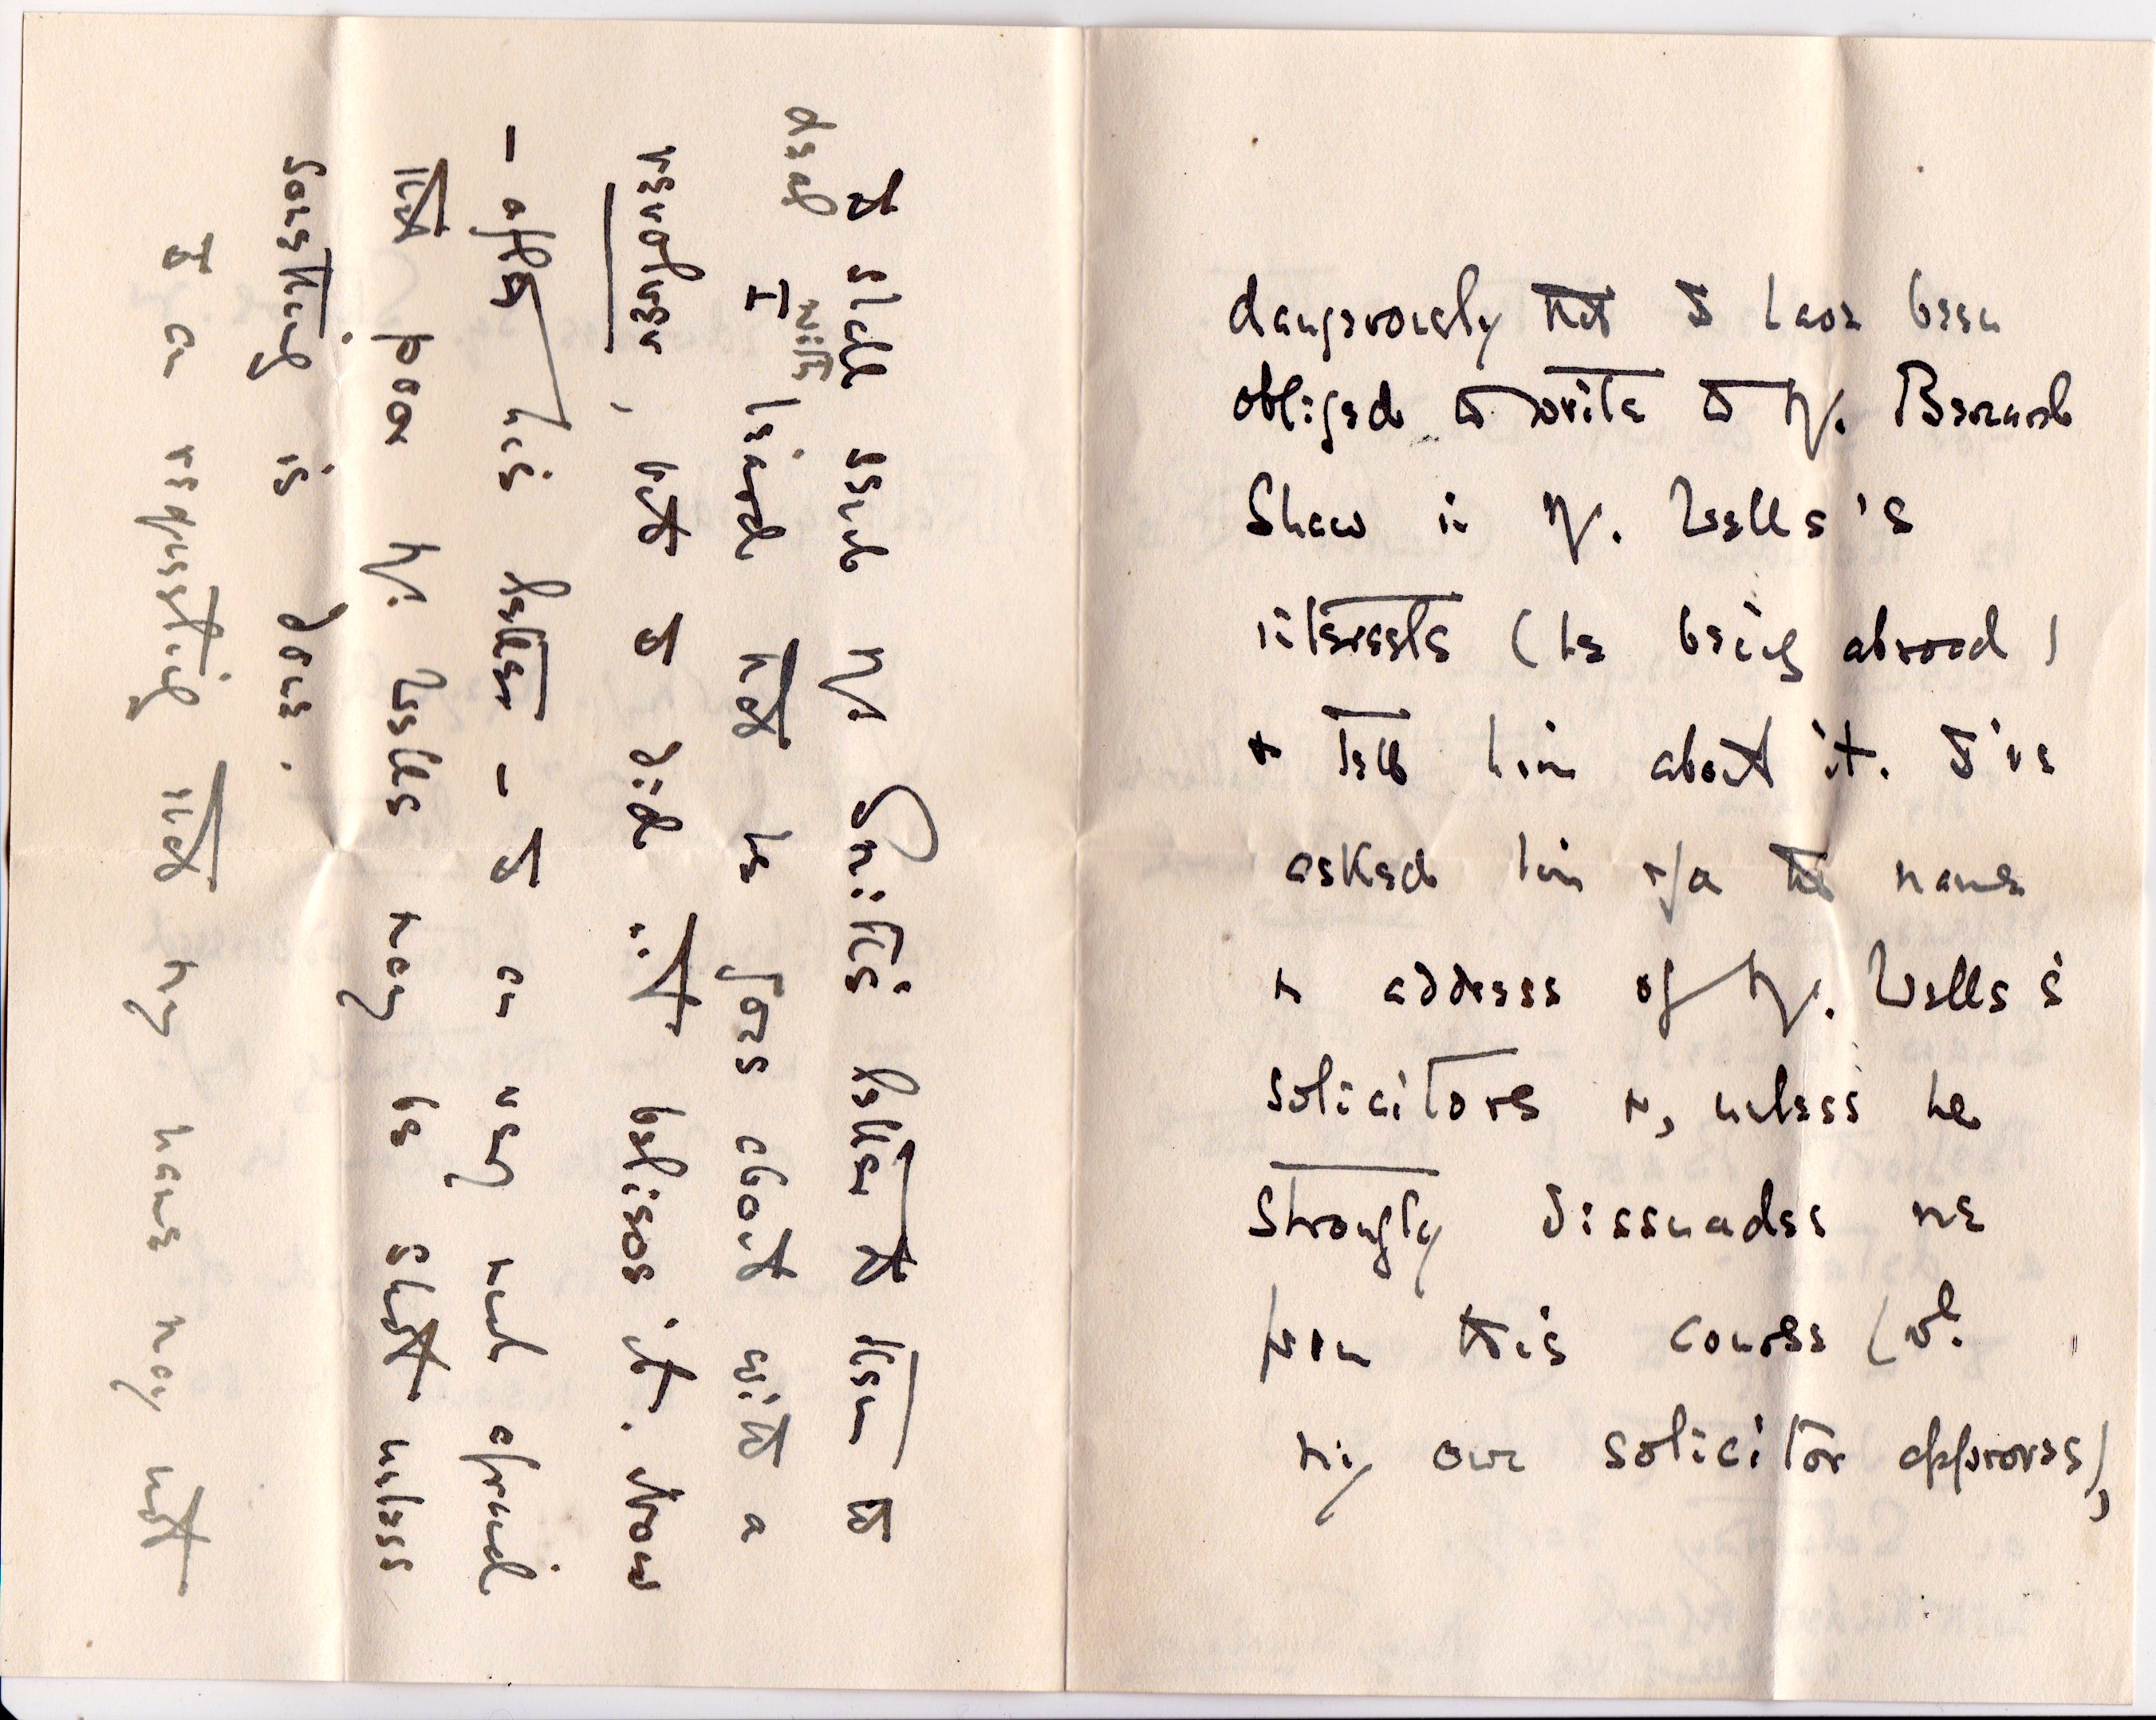 dangerously that I have been
obliged to write to Mr. Bernard
Shaw in Mr. Wells's
interests (he being abroad)
& tell him about it. I've
asked him for the name
& address of Mr. Wells's
solicitors &, unless he
strongly dissuades me
from this course (wh.
my own solicitor approves),
I shall send Mr. letter to them to
deal with. I heard that he goes about with a
revolver, but I did believe it. Now
- after his letter - I am very much afraid
that poor Mr. Wells may be shot unless
something is done.
I am requesting that my name may not